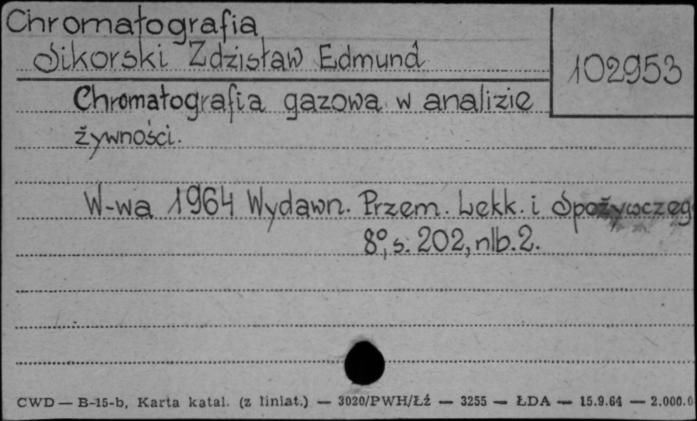 Chromatografia
Sikorski Zdzisław Edmund
102953
Chromatografia gazowa w analizie
żywności.
W-wa 1964 Wydawn. Przem. Lekk. i Spożywczeg
8°, s. 202, nlb. 2.
CWD — B-15-b, Karta katal. (z liniat.) — 3020/PWH/Łź — 3255 — ŁDA — 15.9.64 — 2.000.0